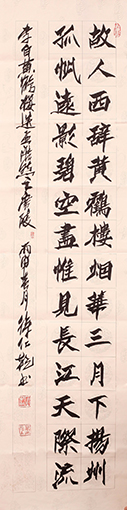 故人西辭黃鶴樓烟華三月下揚州
孤帆遠影碧空盡惟見長江天際流
李白黃鶴樓送孟浩然之廣陵 丙申 月 仁 書